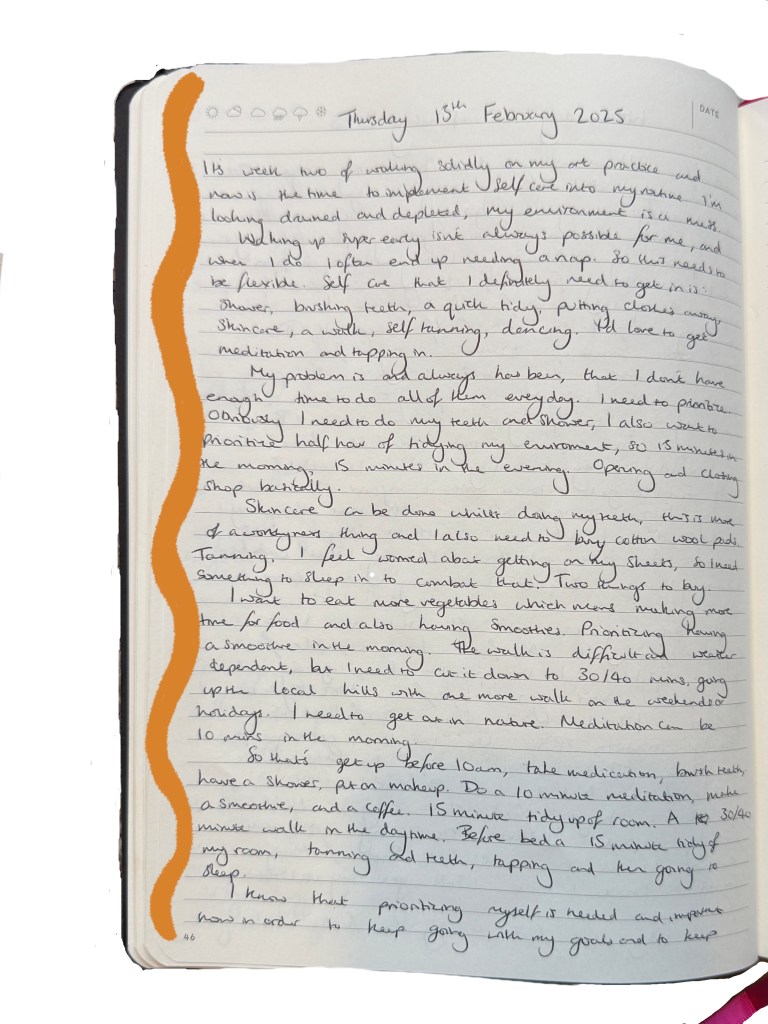 Thursday 13th February 2025
DATE
Its week two of working solidly on my art practice and
now is the time to implement self care into my routine I'm
looking drained and depleted, my environment is a mess.
Waking up super early isn't always possible for me, and
when I do I often end up needing a nap. So this needs to
be flexible. Self care that I definitely need to get in is:
Shower, brushing teeth, a quick tidy, putting clothes away,
Skincare, a walk, self tanning, dancing. I'd love to get
meditation and tapping in.
My problem is and always has been, that I don't have
enough time to do all of them everyday. I need to prioritize.
Obviously I need to do my teeth and shower, I also want to
Prioritize half hour of tidying my enviroment, so 15 minutes in
the morning, 15 minutes in the evening. Opening and closing
shop basically.
Skincare can be done whilst doing my teeth, this is more
of a thing and I also need to buy cotton wool pads.
Tanning, I feel worried about getting on my sheets, so I need
something to sleep in to combat that. Two things to buy.
I want to eat more vegetables which means making more
time for food and also having smoothies. Prioritizing having
a smoothie in the morning. The walk is difficult and weather
dependent, but I need to cut it down to 30/40 mins, going
up the local hills with one more walk on the weekends or
holidays. I need to get out in nature. Meditation can be
10 mins in the morning.
So that's get up before 10am, take medication, brush teeth,
have a shower, put on makeup. Do a 10 minute meditation, make
a smoothie, and a coffee. 15 minute tidy up of room. A 30/40
minute walk in the daytime. Before bed a 15 minute tidy of
my room, tanning and teeth, tapping and then going to
sleep.
I know that prioritizing myself is needed and important
now in order to keep going with my goals and to keep
46